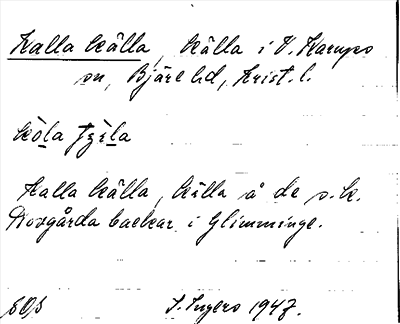 Kalla källa, källa i V. Karups
sn, Bjäre hd, Krist. l.
Kalla källa, källa å de s.k.
backar i Glimminge.
S. Ingers 1947.